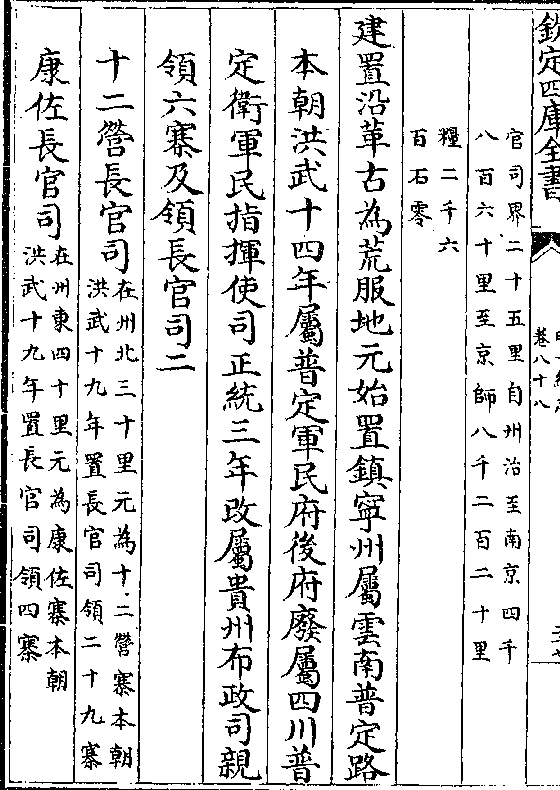 欽定四庫全書
卷八十八
官司界二十五里自州治至南京四千
八百六十里至京師八千二百二十里
糧二千六
百石零
建置沿革古為荒服地元始置鎮寧州屬雲南普定路
本朝洪武十四年屬普定軍民府後府廢屬四川普
定衛軍民指揮使司正統三年改屬貴州布政司親
領六寨及領長官司二
十二營長官司在州北三十里元為十二營寨本朝
洪武十九年置長官司領二十九寨
康佐長官司在州東四十里元為康佐寨本朝
洪武十九年置長官司領四寨